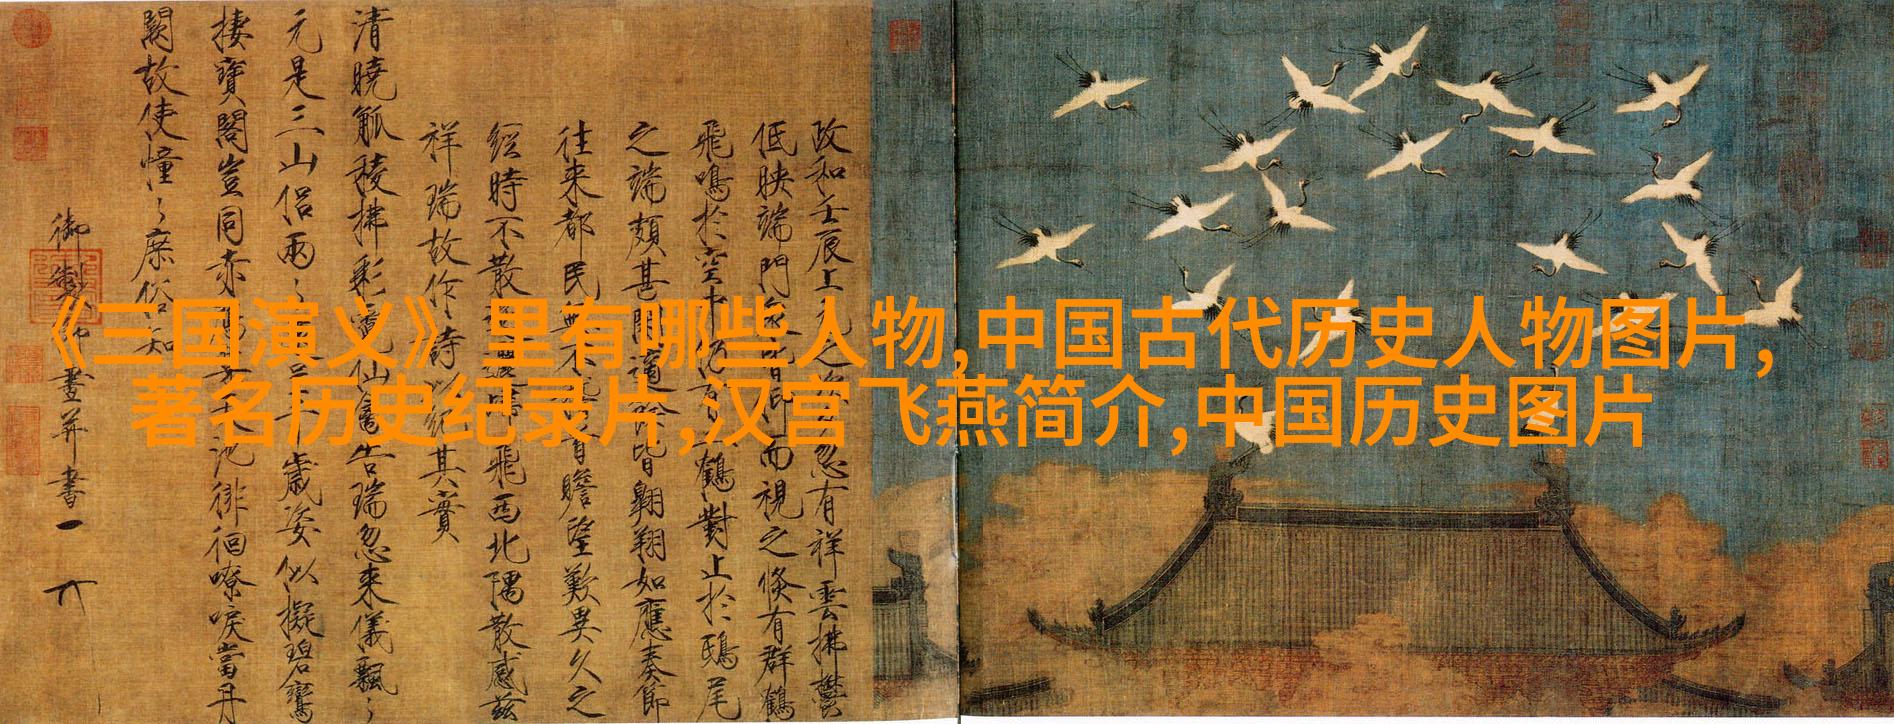 《三国演义》里有哪些人物,中国古代历史人物图片,
著名历史纪录片,汉宫飞燕简介,中国历史图片
政和壬辰上元之忽有祥雲拂鬱
低映端門皆仰而視之倏有群鶴
飛鳴於空中仍有鶴對止於鴟尾
之端頗甚閒適餘皆翱翔如應奏節
往來都民無不首瞻望歎異久之
經時不散歸飛西北隅散感茲
祥瑞故作詩以紀其實
清曉觚稜拂彩霓仙禽告瑞忽來儀飄〻
元是三山侶兩〻呈千歲姿似擬碧鸞
棲寶閣豈同赤天池徘徊嘹唳當丹
闕故使憧〻庶俗知
御製御畫并書